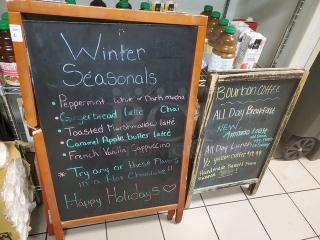 Winter
Seasonals
• Peppermint white or Dark mocha
• Gingerbread latte Chai
• Toasted Marshmallow latté
• Caramel Apple butter latté
• French Vanilla Cappuccino
* Try any of these Flavors
in a Hot Chocolate!!
Happy Holidays ♡
Bourbon Coffee
All Day Breakfast
NEW
All Day Lunch